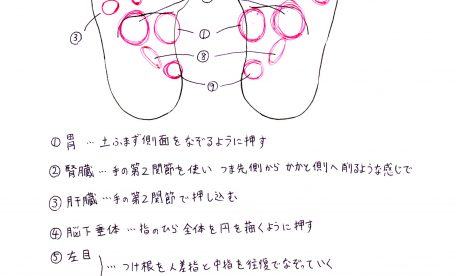 ③
①
⑧
⑨
①胃 …土ふまず側面をなぞるように押す
②腎臓…手の第2関節を使い つま先側から かかと側へ削るような感じで
③肝臓…手の第2関節で押し込む
④脳下垂体…指のひら全体を円を描くように押す
⑤左目
…つけ根を人差指と中指を往復でなぞっていく